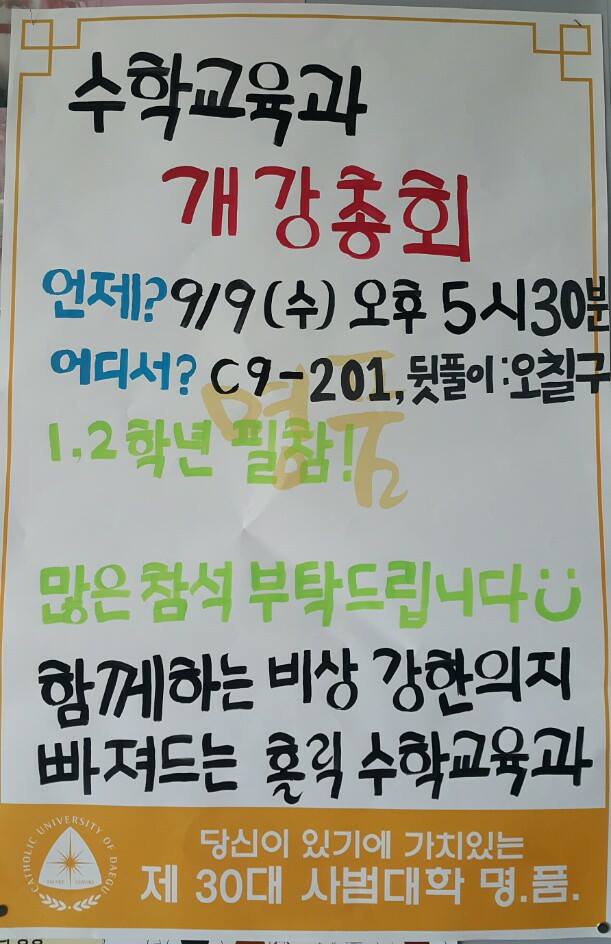 수학교육과
개강총회
언제? 9/9 (수) 오후 5시30분
어디서? C9-201, 뒷풀이:오칠구
명품
1,2학년 필참!
많은 참석 부탁드립니다
함께하는 비상 강한의지
빠져드는 홀릭 수학교육과
CATHOLIC UNIVERSITY OF DAEGU
당신이 있기에 가치있는
제 30대 사범대학 명.품.